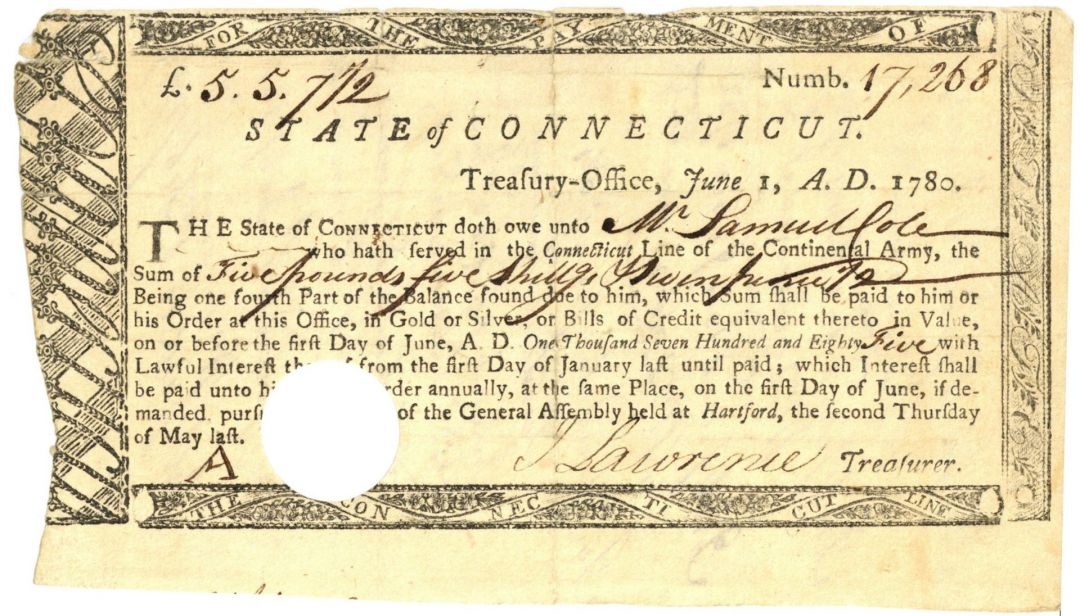 FOR THE PAYMENT OF
£. 5. 5. 7 1/2 Numb. 17,268
STATE of CONNECTICUT.
Treaſury-Office, June 1, A. D. 1780.
THE State of CONNECTICUT doth owe unto Mr. Samuel Cole
who hath ſerved in the Connecticut Line of the Continental Army, the
Sum of Five pounds five Shillgs Seven pence 1/2
Being one fourth Part of the Balance found due to him, which Sum ſhall be paid to him or
his Order at this Office, in Gold or Silver, or Bills of Credit equivalent thereto in Value,
on or before the firſt Day of June, A. D. One Thouſand Seven Hundred and Eighty Five with
Lawful Intereſt from the firſt Day of January laſt until paid; which Intereſt ſhall
be paid unto annually, at the ſame Place, on the firſt Day of June, if de-
manded, of the General Aſſembly held at Hartford, the ſecond Thurſday
of May laſt.
A J Lawrence Treaſurer.
THE CONNECTICUT LINE